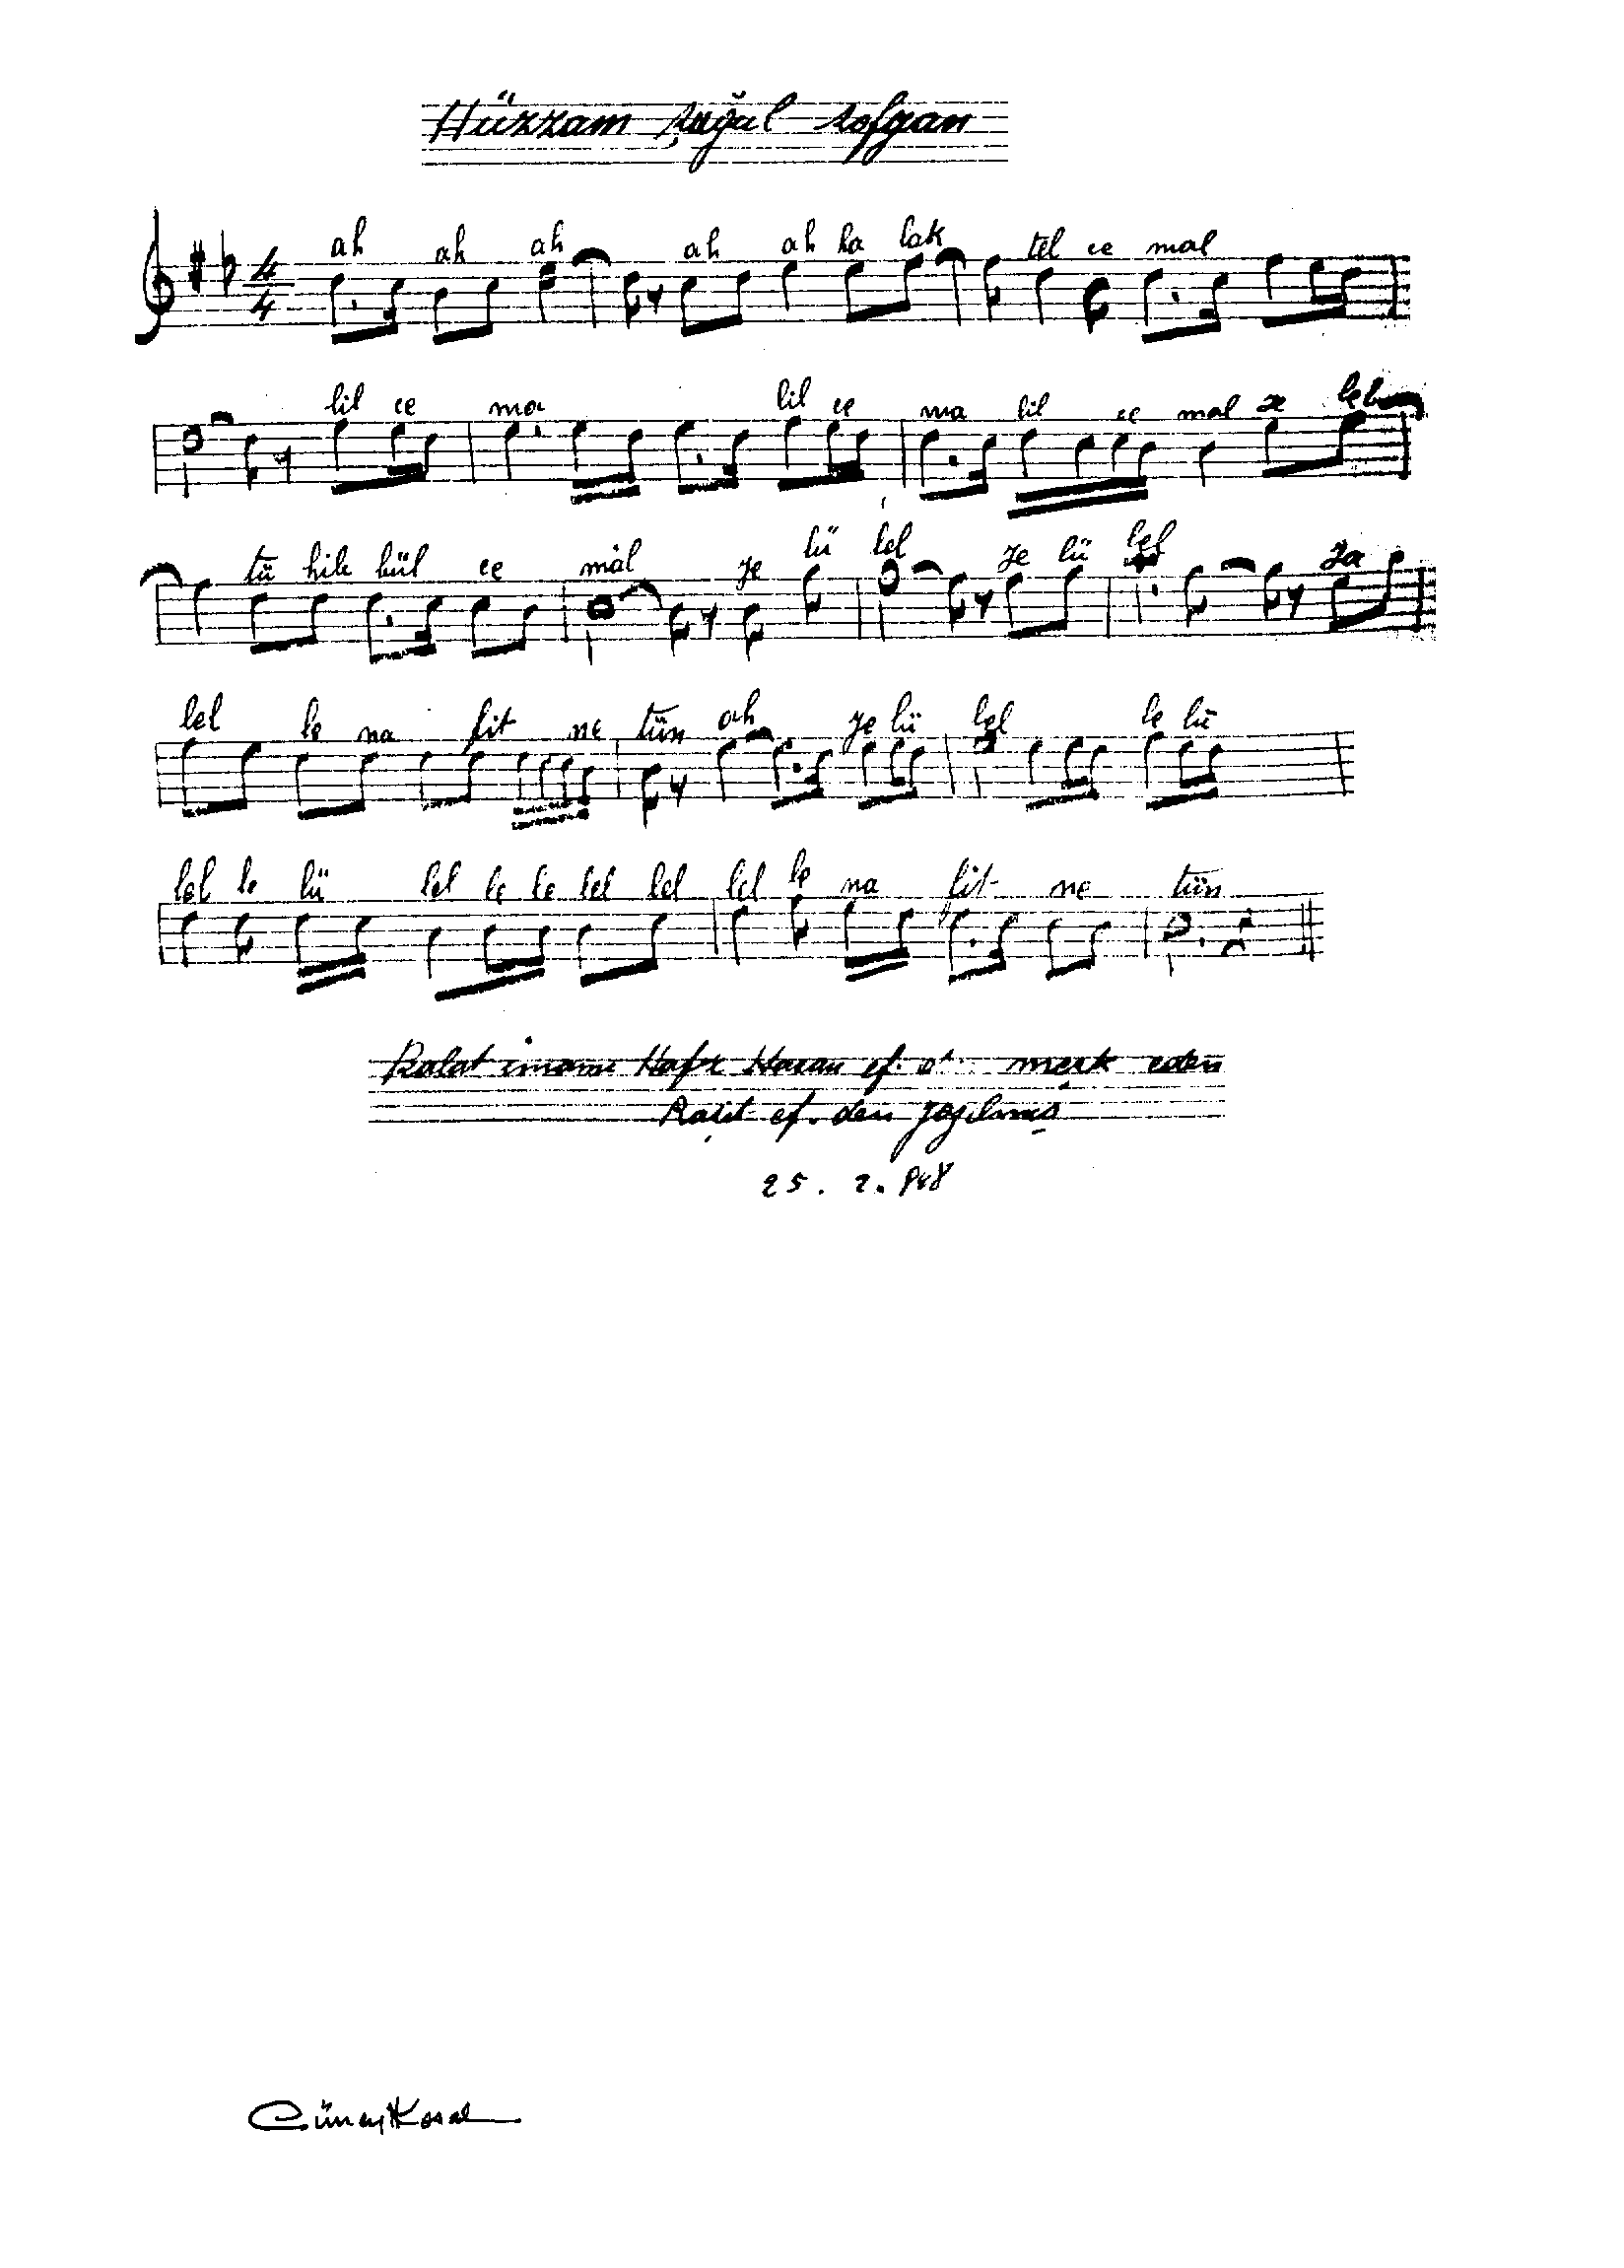 Hüzzam şuğul sofyan
4 4
ah ah ah ah ah ha lak tel ce mal
lil ce ma lil ce ma lil ce mal ze leb
tü hik kül ce mâl ye lü lel ye lü lel ya
lel le na fit ne tün ah ye lü lel le lü
lel le lü lel le le lel lel lel le na fit- ne tün
Balat imamı Hafız Hasan ef. meşk eden
Raşit ef. den yazılmış
25. 2.
Cüneyt Kosal